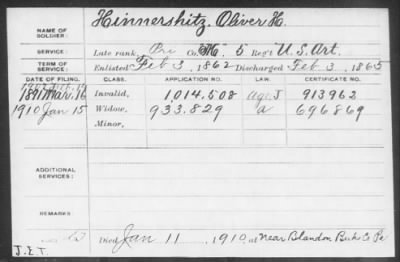 NAME OF SOLDIER: Hinnershitz, Oliver H.
SERVICE: Late rank, Pri Co. M, 5 Reg't U.S. Art.
TERM OF SERVICE: Enlisted Feb 3, 1862 Discharged Feb. 3, 1865
DATE OF FILING. CLASS. APPLICATION NO. LAW. CERTIFICATE NO.
1891 Mar. 16 Invalid, 1,014,508 913962
1910 Jan 15 Widow, 933.829 a 696869
Minor,
ADDITIONAL SERVICES:
REMARKS:
Died Jan 11, 1910, at near Blandon Berks Co Pa
J.E.T.